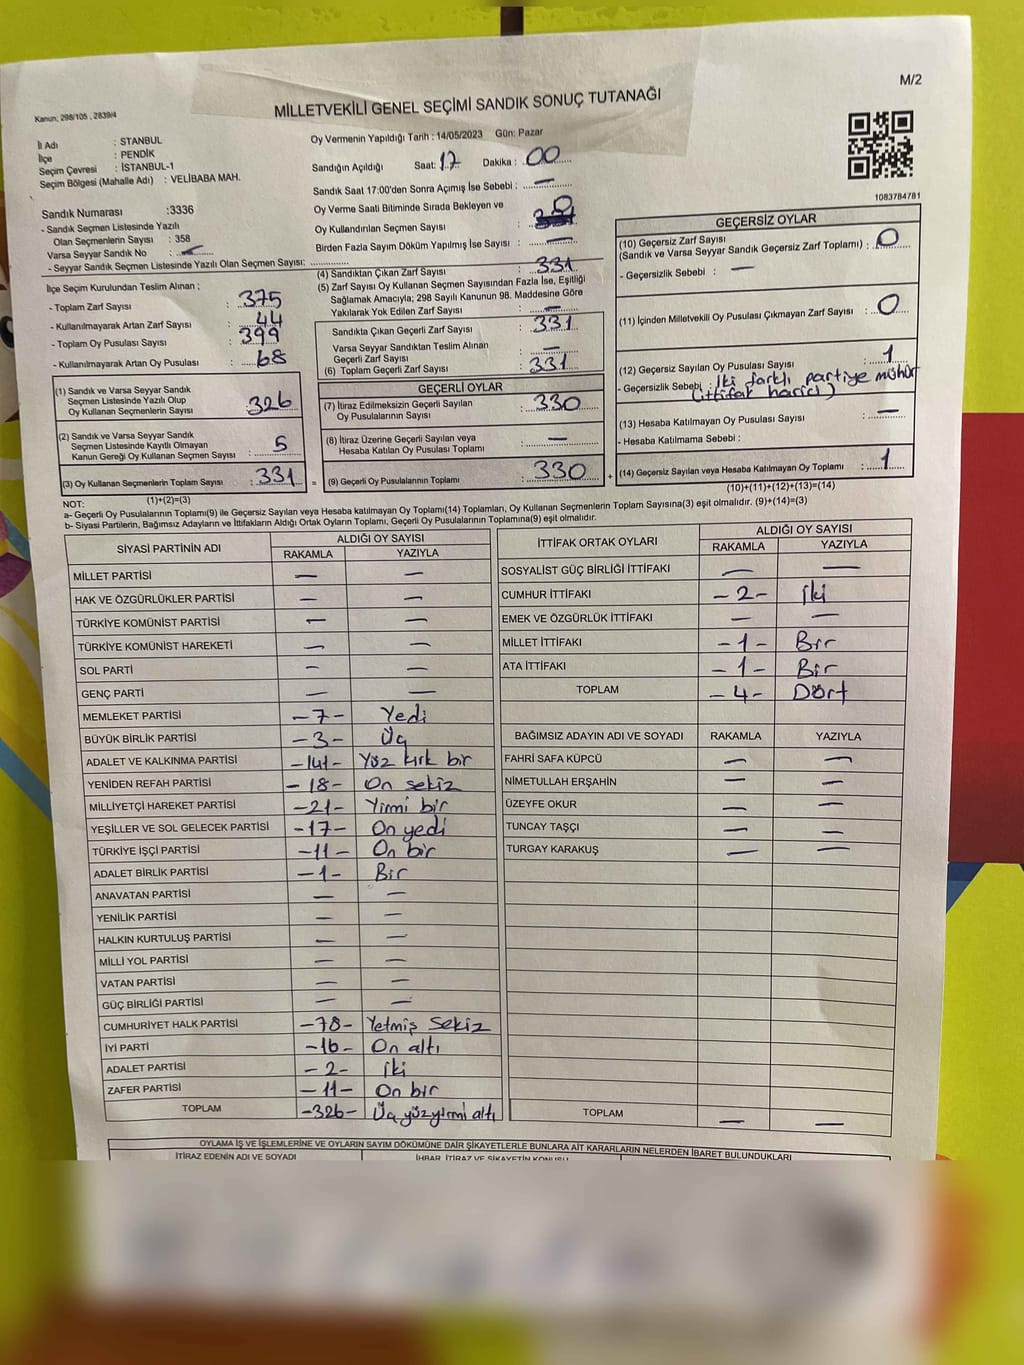 M/2
Kanun; 298/105 , 2839/4
MİLLETVEKİLİ GENEL SEÇİMİ SANDIK SONUÇ TUTANAĞI
İl Adı : STANBUL
İlçe : PENDİK
Seçim Çevresi : İSTANBUL-1
Seçim Bölgesi (Mahalle Adı) : VELİBABA MAH.
Oy Vermenin Yapıldığı Tarih : 14/05/2023 Gün: Pazar
Sandığın Açıldığı Saat: 17 Dakika : 00
Sandık Saat 17:00'den Sonra Açımış İse Sebebi : —
Oy Verme Saati Bitiminde Sırada Bekleyen ve
Oy Kullandırılan Seçmen Sayısı : 0
Birden Fazla Sayım Döküm Yapılmış İse Sayısı : —
1083784781
Sandık Numarası :3336
- Sandık Seçmen Listesinde Yazılı
Olan Seçmenlerin Sayısı : 358
Varsa Seyyar Sandık No : —
- Seyyar Sandık Seçmen Listesinde Yazılı Olan Seçmen Sayısı:
İlçe Seçim Kurulundan Teslim Alınan ;
- Toplam Zarf Sayısı : 375
- Kullanılmayarak Artan Zarf Sayısı : 44
- Toplam Oy Pusulası Sayısı : 399
- Kullanılmayarak Artan Oy Pusulası : 68
(1) Sandık ve Varsa Seyyar Sandık
Seçmen Listesinde Yazılı Olup
Oy Kullanan Seçmenlerin Sayısı : 326
(2) Sandık ve Varsa Seyyar Sandık
Seçmen Listesinde Kayıtlı Olmayan
Kanun Gereği Oy Kullanan Seçmen Sayısı : 5
(3) Oy Kullanan Seçmenlerin Toplam Sayısı : 331
(1)+(2)=(3)
(4) Sandıktan Çıkan Zarf Sayısı : 331
(5) Zarf Sayısı Oy Kullanan Seçmen Sayısından Fazla İse, Eşitliği
Sağlamak Amacıyla; 298 Sayılı Kanunun 98. Maddesine Göre
Yakılarak Yok Edilen Zarf Sayısı : —
Sandıkta Çıkan Geçerli Zarf Sayısı : 331
Varsa Seyyar Sandıktan Teslim Alınan
Geçerli Zarf Sayısı : —
(6) Toplam Geçerli Zarf Sayısı : 331
GEÇERLİ OYLAR
(7) İtiraz Edilmeksizin Geçerli Sayılan
Oy Pusulalarının Sayısı : 330
(8) İtiraz Üzerine Geçerli Sayılan veya
Hesaba Katılan Oy Pusulası Toplamı : —
= (9) Geçerli Oy Pusulalarının Toplamı : 330
GEÇERSİZ OYLAR
(10) Geçersiz Zarf Sayısı
(Sandık ve Varsa Seyyar Sandık Geçersiz Zarf Toplamı) : 0
- Geçersizlik Sebebi : —
(11) İçinden Milletvekili Oy Pusulası Çıkmayan Zarf Sayısı : 0
(12) Geçersiz Sayılan Oy Pusulası Sayısı : 1
- Geçersizlik Sebebi : İki farklı partiye mühür
(ittifak harici)
(13) Hesaba Katılmayan Oy Pusulası Sayısı : —
- Hesaba Katılmama Sebebi :
+ (14) Geçersiz Sayılan veya Hesaba Katılmayan Oy Toplamı : 1
(10)+(11)+(12)+(13)=(14)
NOT:
a- Geçerli Oy Pusulalarının Toplamı(9) ile Geçersiz Sayılan veya Hesaba katılmayan Oy Toplamı(14) Toplamları, Oy Kullanan Seçmenlerin Toplam Sayısına(3) eşit olmalıdır. (9)+(14)=(3)
b- Siyasi Partilerin, Bağımsız Adayların ve İttifakların Aldığı Ortak Oyların Toplamı, Geçerli Oy Pusulalarının Toplamına(9) eşit olmalıdır.
SİYASİ PARTİNİN ADI ALDIĞI OY SAYISI
RAKAMLA YAZIYLA
MİLLET PARTİSİ — —
HAK VE ÖZGÜRLÜKLER PARTİSİ — —
TÜRKİYE KOMÜNİST PARTİSİ — —
TÜRKİYE KOMÜNİST HAREKETİ — —
SOL PARTİ — —
GENÇ PARTİ — —
MEMLEKET PARTİSİ -7- Yedi
BÜYÜK BİRLİK PARTİSİ -3- Üç
ADALET VE KALKINMA PARTİSİ -141- Yüz kırk bir
YENİDEN REFAH PARTİSİ -18- On sekiz
MİLLİYETÇİ HAREKET PARTİSİ -21- Yirmi bir
YEŞİLLER VE SOL GELECEK PARTİSİ -17- On yedi
TÜRKİYE İŞÇİ PARTİSİ -11- On bir
ADALET BİRLİK PARTİSİ -1- Bir
ANAVATAN PARTİSİ — —
YENİLİK PARTİSİ — —
HALKIN KURTULUŞ PARTİSİ — —
MİLLİ YOL PARTİSİ — —
VATAN PARTİSİ — —
GÜÇ BİRLİĞİ PARTİSİ — —
CUMHURİYET HALK PARTİSİ -78- Yetmiş Sekiz
İYİ PARTİ -16- On altı
ADALET PARTİSİ -2- İki
ZAFER PARTİSİ -11- On bir
TOPLAM -326- Üç yüz yirmi altı
İTTİFAK ORTAK OYLARI ALDIĞI OY SAYISI
RAKAMLA YAZIYLA
SOSYALİST GÜÇ BİRLİĞİ İTTİFAKI — —
CUMHUR İTTİFAKI -2- İki
EMEK VE ÖZGÜRLÜK İTTİFAKI — —
MİLLET İTTİFAKI -1- Bir
ATA İTTİFAKI -1- Bir
TOPLAM -4- Dört
BAĞIMSIZ ADAYIN ADI VE SOYADI RAKAMLA YAZIYLA
FAHRİ SAFA KÜPCÜ — —
NİMETULLAH ERŞAHİN — —
ÜZEYFE OKUR — —
TUNCAY TAŞÇI — —
TURGAY KARAKUŞ — —
TOPLAM — —
OYLAMA İŞ VE İŞLEMLERİNE VE OYLARIN SAYIM DÖKÜMÜNE DAİR ŞİKAYETLERLE BUNLARA AİT KARARLARIN NELERDEN İBARET BULUNDUKLARI
İTİRAZ EDENİN ADI VE SOYADI İHBAR, İTİRAZ VE ŞİKAYETİN KONUSU